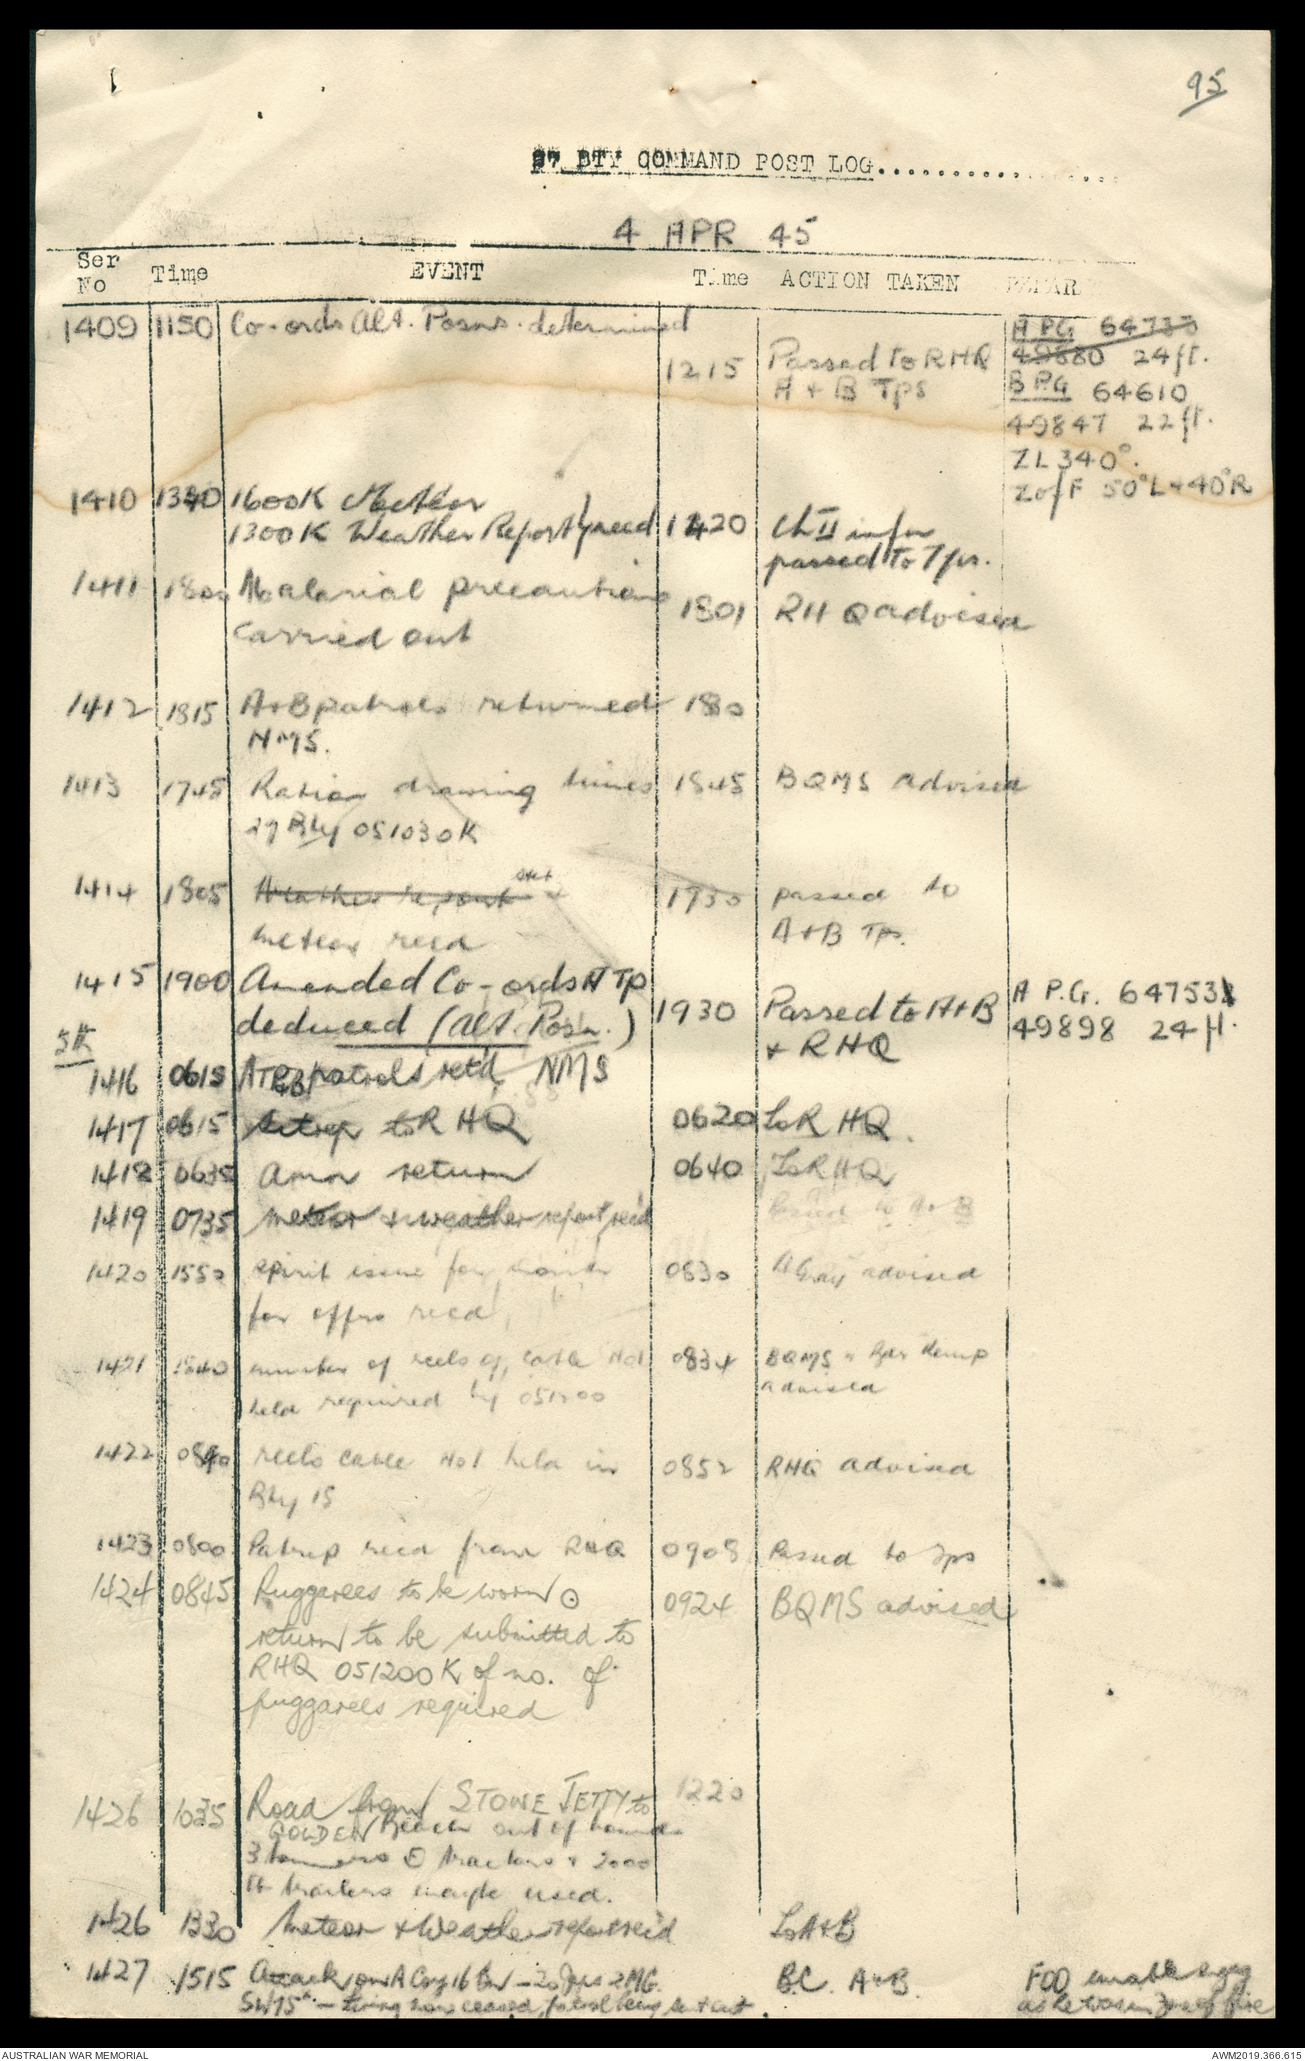 95
27 BTY COMMAND POST LOG..................
4 APR 45
Ser No Time EVENT Time ACTION TAKEN REMAR
1409 1150 Co-ords Alt. Posns. determined
1215 Passed to RHQ
A + B Tps
A PG 64733
49880 24ft.
B PG 64610
49847 22ft.
ZL 340°.
Z of F 50°L + 40°R
1410 1340 1600K Meteor
1300K Weather Report) recd 1420 Ch II infm
passed to Tps.
1411 1800 Malarial precautions
carried out 1801 RHQ advised
1412 1815 A+B patrols returned 1830
NMS.
1413 1745 Ration drawing times 1845 BQMS advised
27 Bty 051030K
1414 1805 Weather report
meteor recd 1930 passed to
A+B Tps.
1415 1900 Amended Co-ords A Tp
deduced (Alt. Posn.) 1930 Passed to A+B
+ RHQ
A P.G. 64753
49898 24 ft.
5th
1416 0615 patrols retd NMS
1417 0615 Sitrep to RHQ 0620 To RHQ.
1418 0635 Amn return 0640 To RHQ
1419 0735 meteor + weather report recd Passed to A + B
1420 1550 spirit issue for month 0830 advised
for offrs recd
1421 1840 number of reels of cable No1 0834 BQMS + Kemp
held required by 051200 advised
1422 0840 reels cable No1 held in 0852 RHQ advised
Bty 15
1423 0800 Patrep recd from RHQ 0908 Passed to Tps
1424 0845 Puggarees to be worn 0924 BQMS advised
return to be submitted to
RHQ 051200K of no. of
puggarees required
1426 1035 Road from STOWE JETTY to 1220
GOLDEN Beach out of bounds
3 tonners tractors + 2000
lt trailers maybe used.
1426 1330 Meteor + Weather report rec'd To A+B
1427 1515 Attack on A Coy 16 Bn – 20 Japs 2 MG. BC. A+B.
firing now ceased, patrol being sent out.
FOO unable engag
as he was in of fire
AUSTRALIAN WAR MEMORIAL
AWM2019.366.615